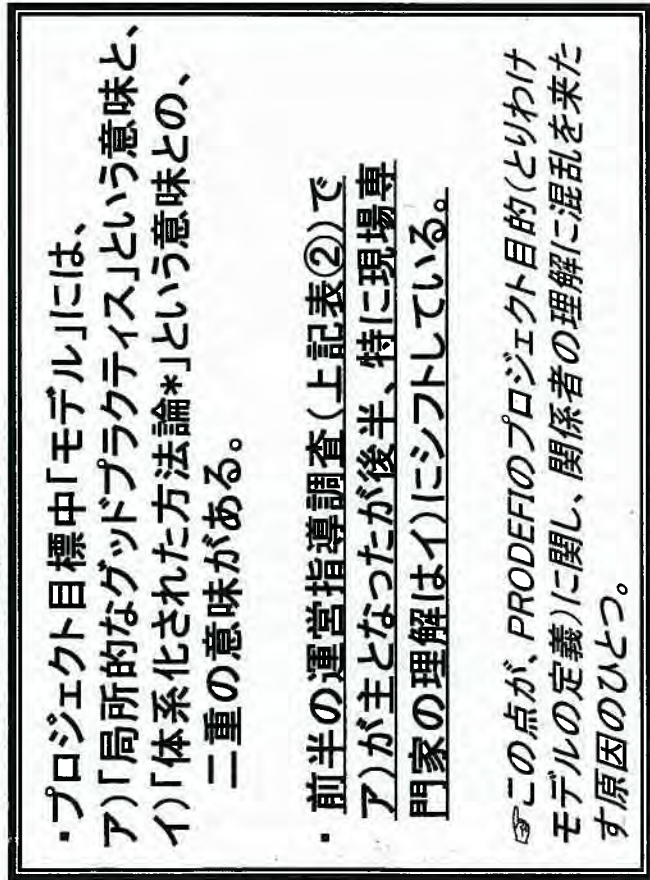 ・プロジェクト目標中「モデル」には、
ア)「局所的なグッドプラクティス」という意味と、
イ)「体系化された方法論*」という意味との、
二重の意味がある。
・ 前半の運営指導調査(上記表②)で
ア)が主となったが後半、特に現場専
門家の理解はイ)にシフトしている。
☞この点が、PRODEFIのプロジェクト目的(とりわけ
モデルの定義)に関し、関係者の理解に混乱を来た
す原因のひとつ。